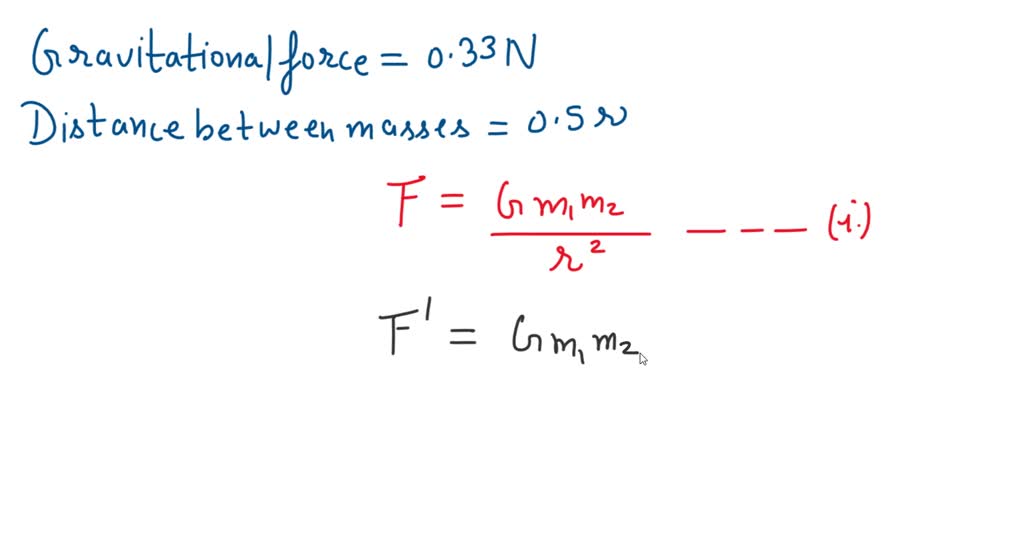 Gravitational force = 0.33 N
Distance between masses = 0.5 r
F = G m₁ m₂ / r² ---- (i.)
F' = G m₁ m₂